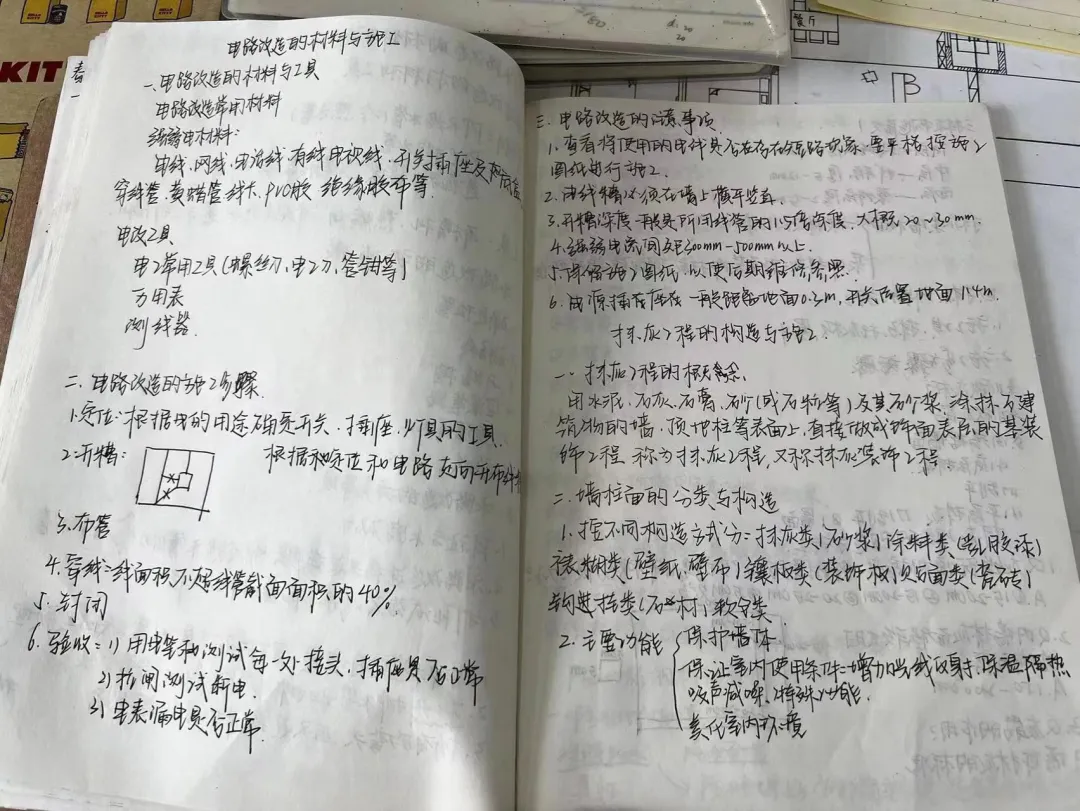 电路改造的材料与施工
一、电路改造的材料与工具
电路改造常用材料
强弱电材料:
电线、网线、电话线、有线电视线、开关插座及底盒
穿线管、黄蜡管线卡、PVC胶 绝缘胶布等
电改工具
电工常用工具(螺丝刀、电工刀、管钳等)
万用表
测线器.
二、电路改造的施工步骤
1.定位:根据电的用途确定开关、插座、灯具的工具.
2.开槽: 根据和定位和电路走向开布线槽
3.布管
4.穿线=线面积不超线管截面面积的40%
5.封闭
6.验收=1)用电笔和测试每一处接头、插座是否正常
2)拉闸测试断电.
3)电表漏电是否正常
三.电路改造的注意事项
1.查看将使用的电线是否存在短路现象.要严格按施工
图纸进行施工.
2.电线槽必须在墙上横平竖直.
3.开槽深度一般是所用线管的1.5倍深度.大概20~30mm.
4.强弱电底间距300mm-500mm以上.
5.保留施工图纸.以便后期维修参照.
6.电源插座底座一般距离地面0.3m,开关后置地面1.4m
抹灰工程的构造与施工
一、抹灰工程的概念.
用水泥、石灰、石膏、砂(或石粉等)及其砂浆、涂抹在建
筑物的墙、顶地柱等表面上,直接做成饰面表层的基装
饰工程 称为抹灰工程,又称抹灰装饰工程
二.墙柱面的分类与构造
1.按不同构造方式分=抹灰类(砂浆)涂料类(乳胶漆)
裱糊类(壁纸.壁布)镶板类(装饰板)贴面类(瓷砖)
钩挂类(石材)软包类
2.主要功能 保护墙体
保证室内使用条件=增加光线反射.保温隔热
吸声减噪、特殊功能.
美化室内环境
B
KIT
餐厅